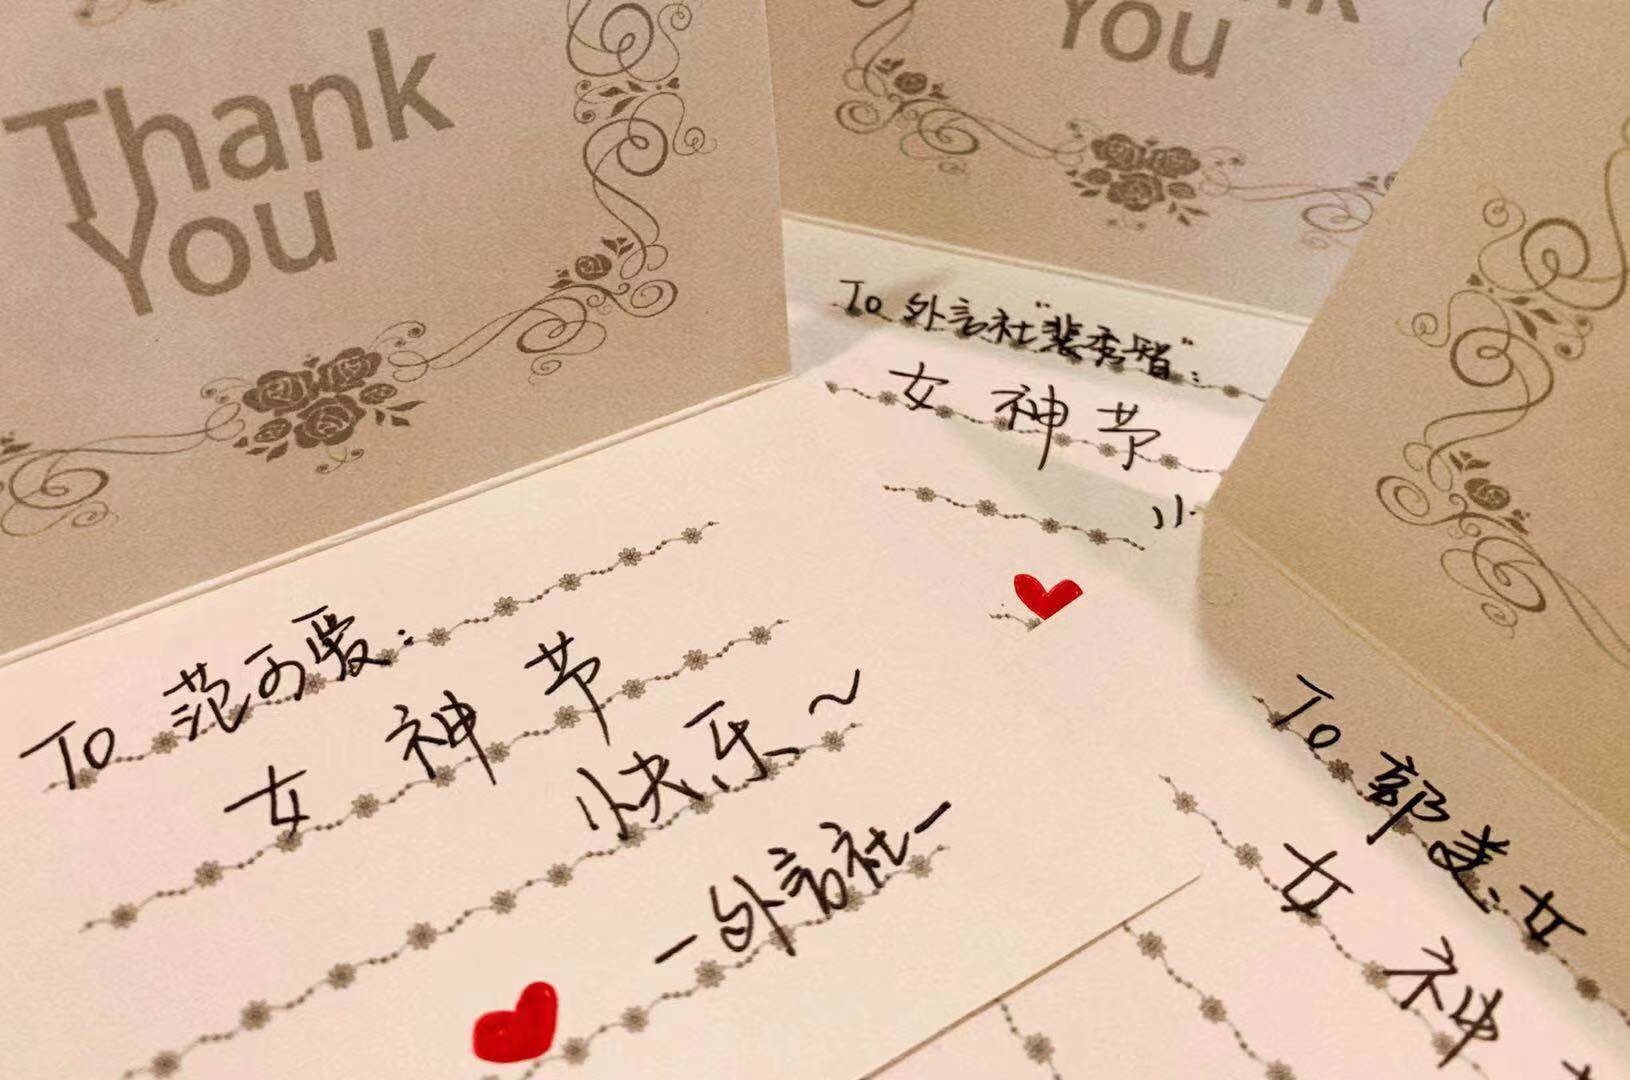 Thank
You
You
To 外言社"裴秀智":
女神节
小
To 范可爱:
女神节
快乐~
-外言社-
To 郭美女
女神